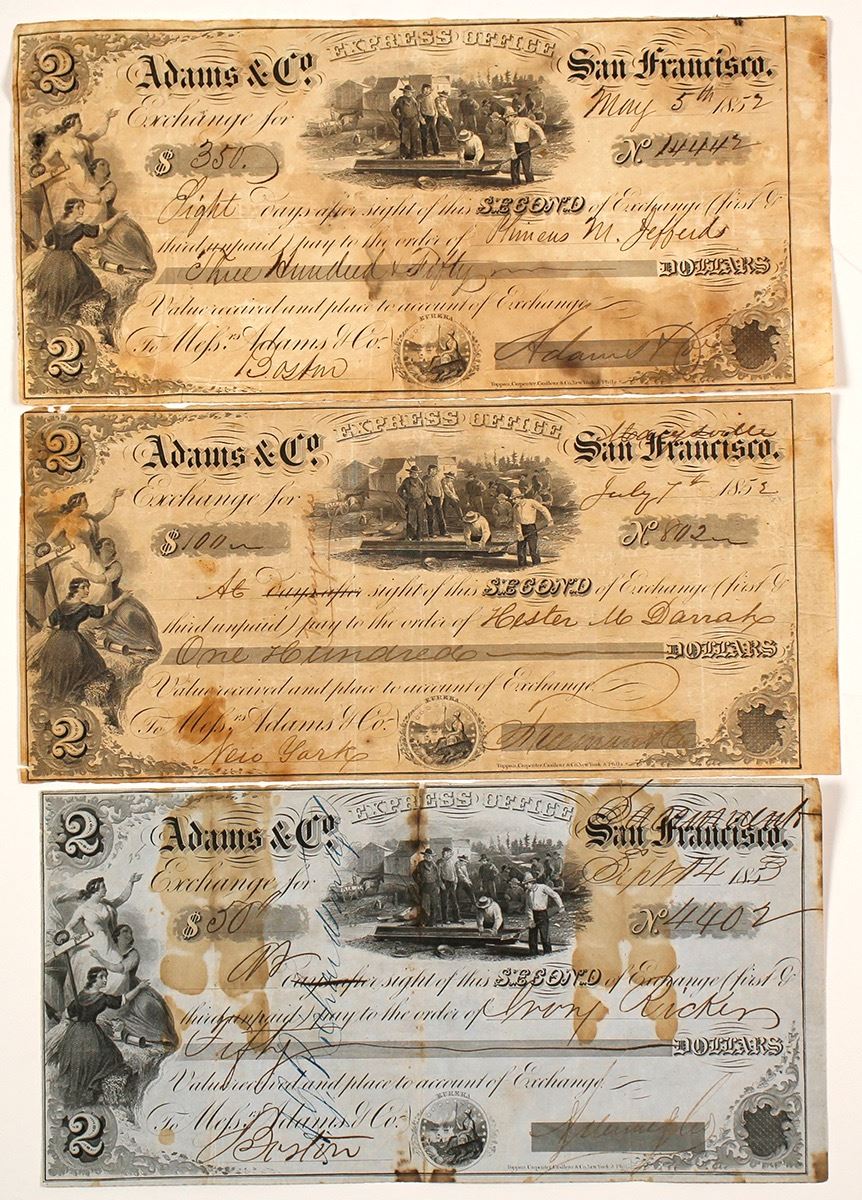 2
EXPRESS OFFICE
Adams & Co. San Francisco.
May 5th 1852
Exchange for
$ 350. No 14442
Eight Days after sight of this SECOND of Exchange (first &
third unpaid) pay to the order of M. Jefferds
Three Hundred & Fifty DOLLARS
Value received and place to account of Exchange
EUREKA
To Messrs. Adams & Co. Adams & Co
2 Boston
Toppan, Carpenter, Casilear & Co. New York & Phila.
2
EXPRESS OFFICE
Marysville
Adams & Co. San Francisco.
Exchange for July 7th 1852
$ 100 No 802
At Days after sight of this SECOND of Exchange (first &
third unpaid) pay to the order of Hester M Darrah
One Hundred DOLLARS
Value received and place to account of Exchange
EUREKA
2 To Messrs. Adams & Co.
New York
Toppan, Carpenter, Casilear & Co. New York & Phila.
2
EXPRESS OFFICE
Adams & Co. San Francisco.
Exchange for Sept 14 1853
$ 50 No 4402
At Days after sight of this SECOND of Exchange (first &
third unpaid) pay to the order of Ivory Ricker
Fifty DOLLARS
Value received and place to account of Exchange
EUREKA
2 To Messrs. Adams & Co.
Boston
Toppan, Carpenter, Casilear & Co. New York & Phila.